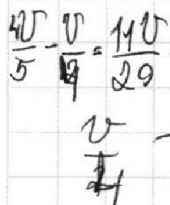 4V/5 - V/4 = 11V/20
V/4 -